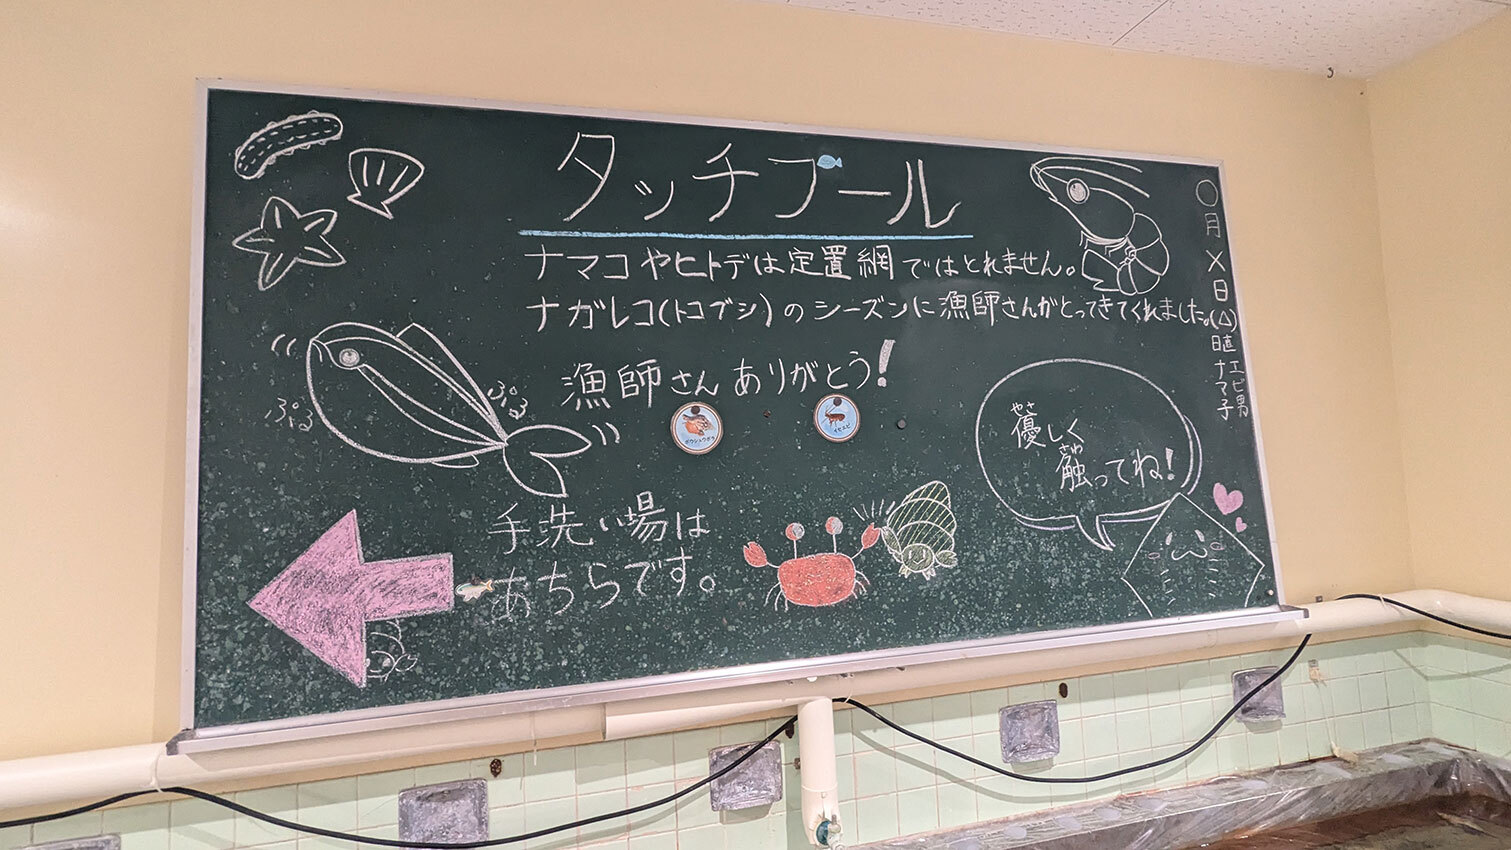 タッチプール
ナマコやヒトデは定置網ではとれません。
ナガレコ(トコブシ)のシーズンに漁師さんがとってきてくれました。
漁師さんありがとう!
ぷる
ぷる
ボウシュウボラ
イセエビ
優しく
やさ
触ってね!
さわ
手洗い場は
あちらです。
○月×日(△)
日直
エビ男
ナマ子